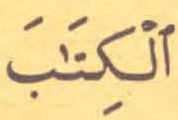 اَلْكِتَٰبَ